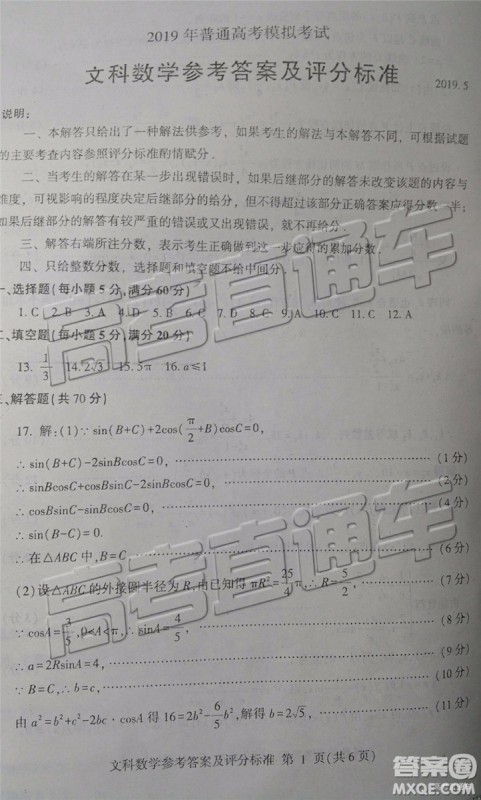 2019 年普通高考模拟考试
文科数学参考答案及评分标准
2019.5
说明：
一、本解答只给出了一种解法供参考，如果考生的解法与本解答不同，可根据试题
的主要考查内容参照评分标准酌情赋分．
二、当考生的解答在某一步出现错误时，如果后继部分的解答未改变该题的内容与
难度，可视影响的程度决定后继部分的给分，但不得超过该部分正确答案应得分数一半；
如果后继部分的解答有较严重的错误或又出现错误，就不再给分．
三、解答右端所注分数，表示考生正确做到这一步应得的累加分数．
四、只给整数分数，选择题和填空题不给中间分．
一、选择题(每小题 5 分，满分 60 分)
1. C 2. B 3. A 4. D 5. D 6. B 7. D 8. C 9. A 10. C 11. C 12. A
二、填空题(每小题 5 分，满分 20 分)
13. 1/3 14. 2√3 15. 5π 16. a≤1
三、解答题(共 70 分)
17. 解：(1)∵ sin(B+C)+2cos(π/2+B)cosC=0，
∴ sin(B+C)−2sinBcosC=0， (1 分)
∴ sinBcosC+cosBsinC−2sinBcosC=0， (2 分)
∴ cosBsinC−sinBcosC=0， (4 分)
∴ sin(B−C)=0.
∴ 在△ABC 中，B=C. (6 分)
(2) 设△ABC 的外接圆半径为 R，由已知得 πR²=25/4 π，∴ R=5/2，
(7 分)
∵ cosA=3/5，0<A<π，∴ sinA=4/5， (8 分)
∴ a=2RsinA=4， (10 分)
∵ B=C，∴ b=c， (11 分)
由 a²=b²+c²−2bc·cosA 得 16=2b²−6/5 b²，解得 b=2√5，
文科数学参考答案及评分标准 第 1 页(共 6 页)
高考直通车
高考直通车
答案圈
MXQE.COM